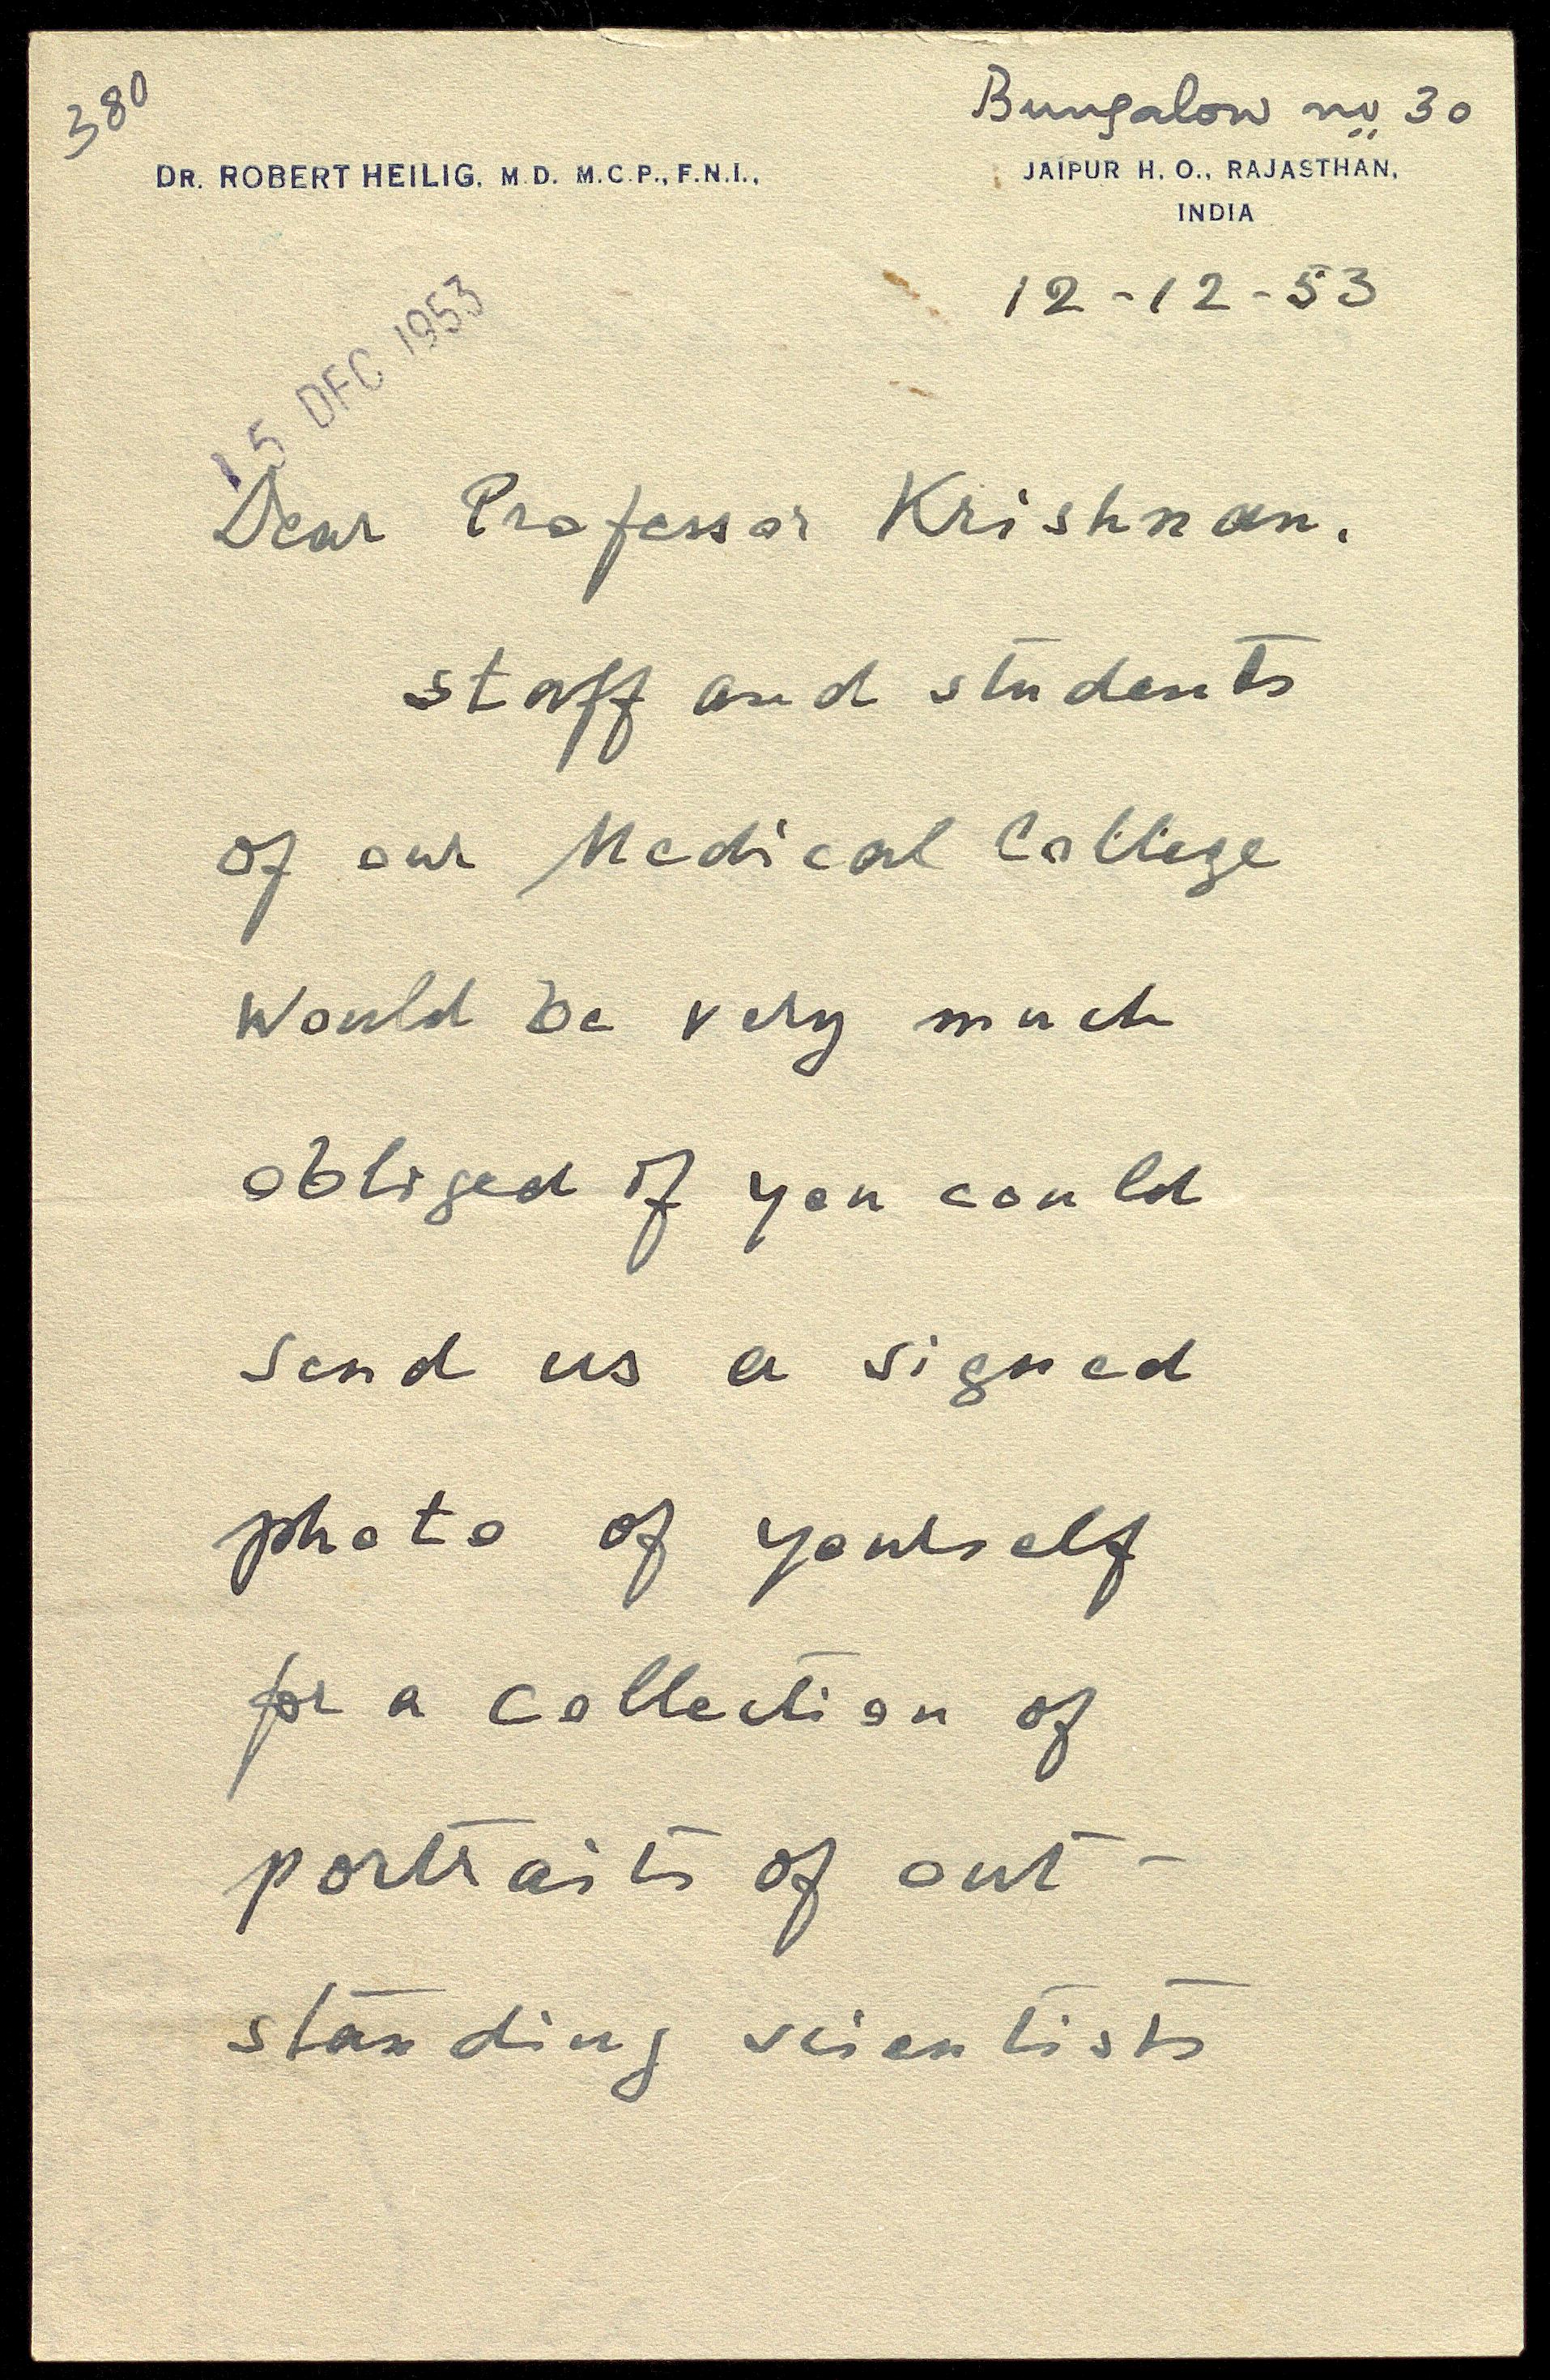 380
Bungalow no 30
DR. ROBERT HEILIG. M.D. M.C.P., F.N.I.,
JAIPUR H. O., RAJASTHAN,
INDIA
12-12-53
15 DEC 1953
Dear Professor Krishnan,
staff and students
of our Medical College
would be very much
obliged if you could
send us a signed
photo of yourself
for a collection of
portraits of out-
standing scientists